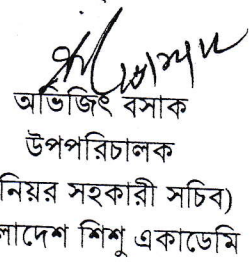 অভিজিৎ বসাক
উপপরিচালক
নিয়র সহকারী সচিব)
লাদেশ শিশু একাডেমি